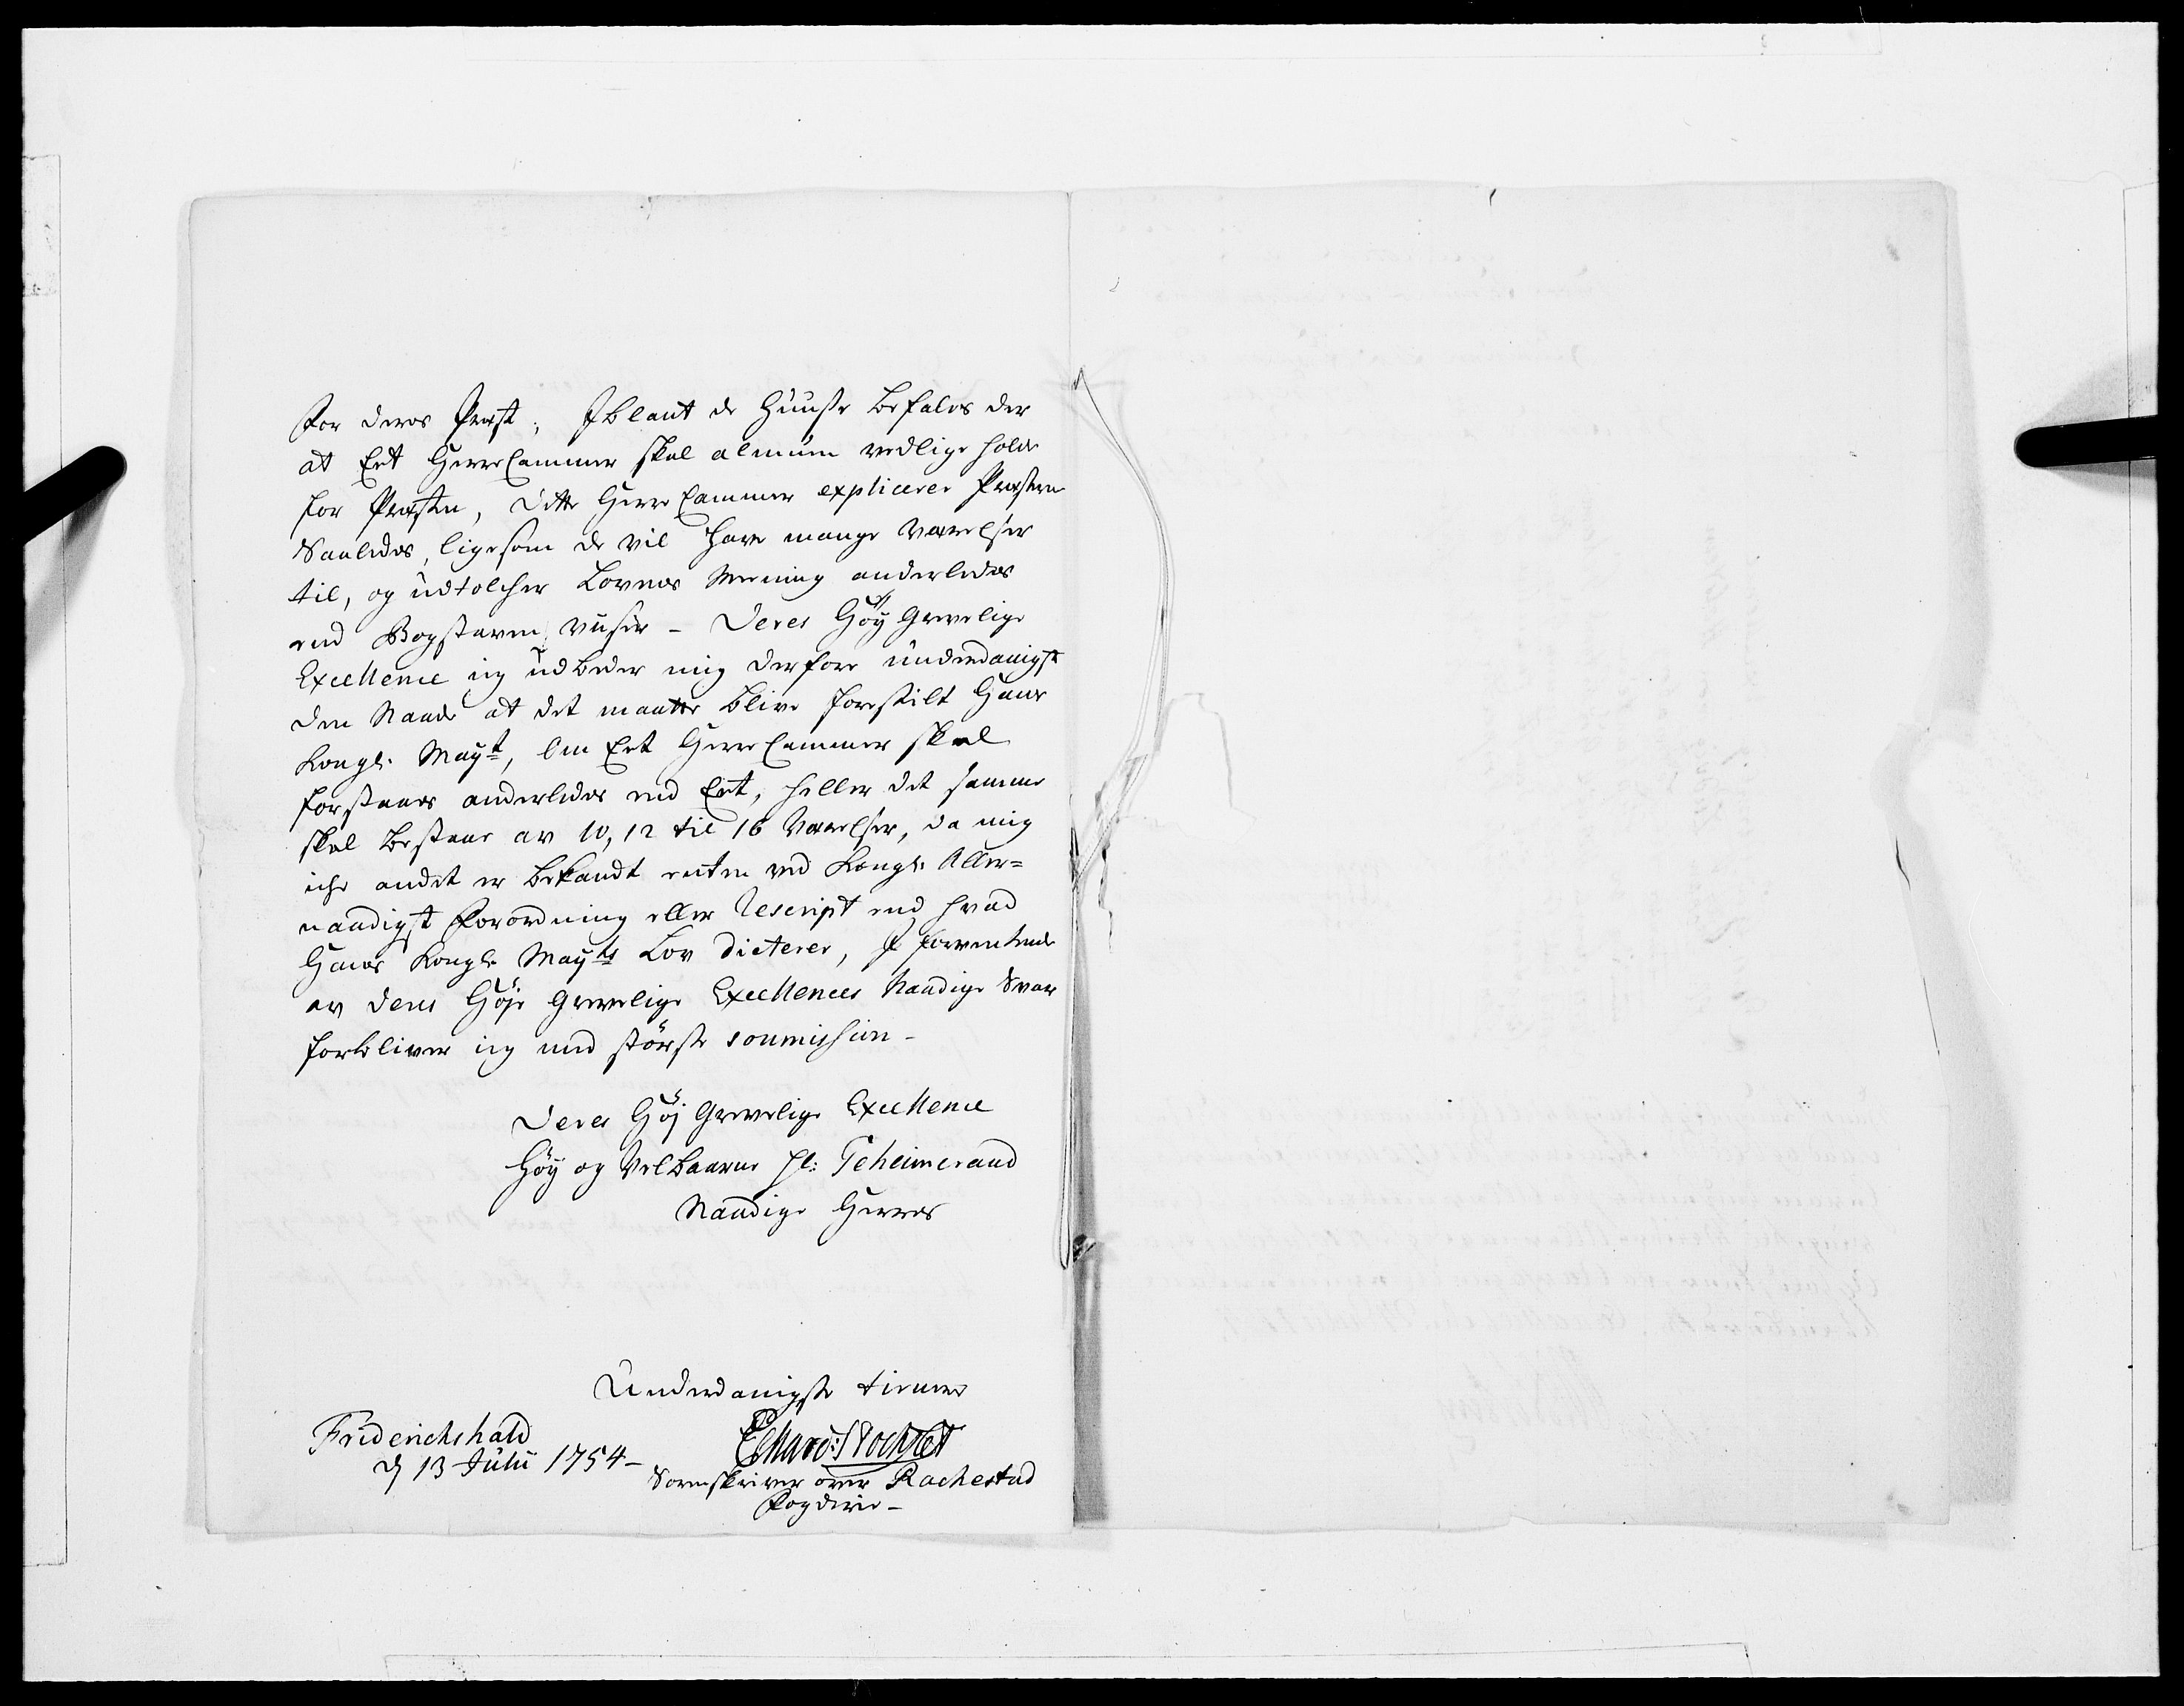 for deres Præst, Iblant de Huuse befales der
at Eet Herre Cammer skal almuen vedlige holde
for Præsten, dette Herre Cammer explicerer Præsterne
Saaledes, ligesom de vil have mange Værelser
til, og üdtolcher Lovens Meening anderledes
end Bogstaven viiser – Deres Höy Grevelige
Excellence ieg üdbeder mig derfore ünderdanigst
den Naade at det maatte blive forestilt Hans
Kongl. Mayt, om Eet Herre Cammer skal
forstaaes anderledes end Eet, heller det samme
skal bestaae av 10, 12 til 16 Værelser, da mig
iche andet er bekandt enten ved Kongl. Aller=
naadigst Forordning eller Rescript end hvad
Hans Kongl. Mayts Lov dicterer, I forventende
av deres Höje Grevelige Excellences Naadige Svar
forbliver ieg med störste soumission –
Deres Höj Grevelige Excellence
Höy og Velbaarne Hr: Geheimeraad
Naadige Herres
Underdanigste tienere
Friderichshald
d 13 Julii 1754 –
Sorenskriver over Rachestad
Fogderie –